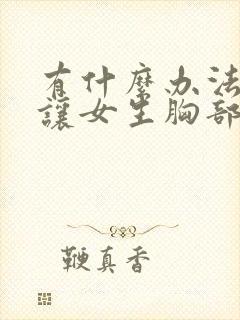 有什麽办法
讓女生胸部
鞭真香